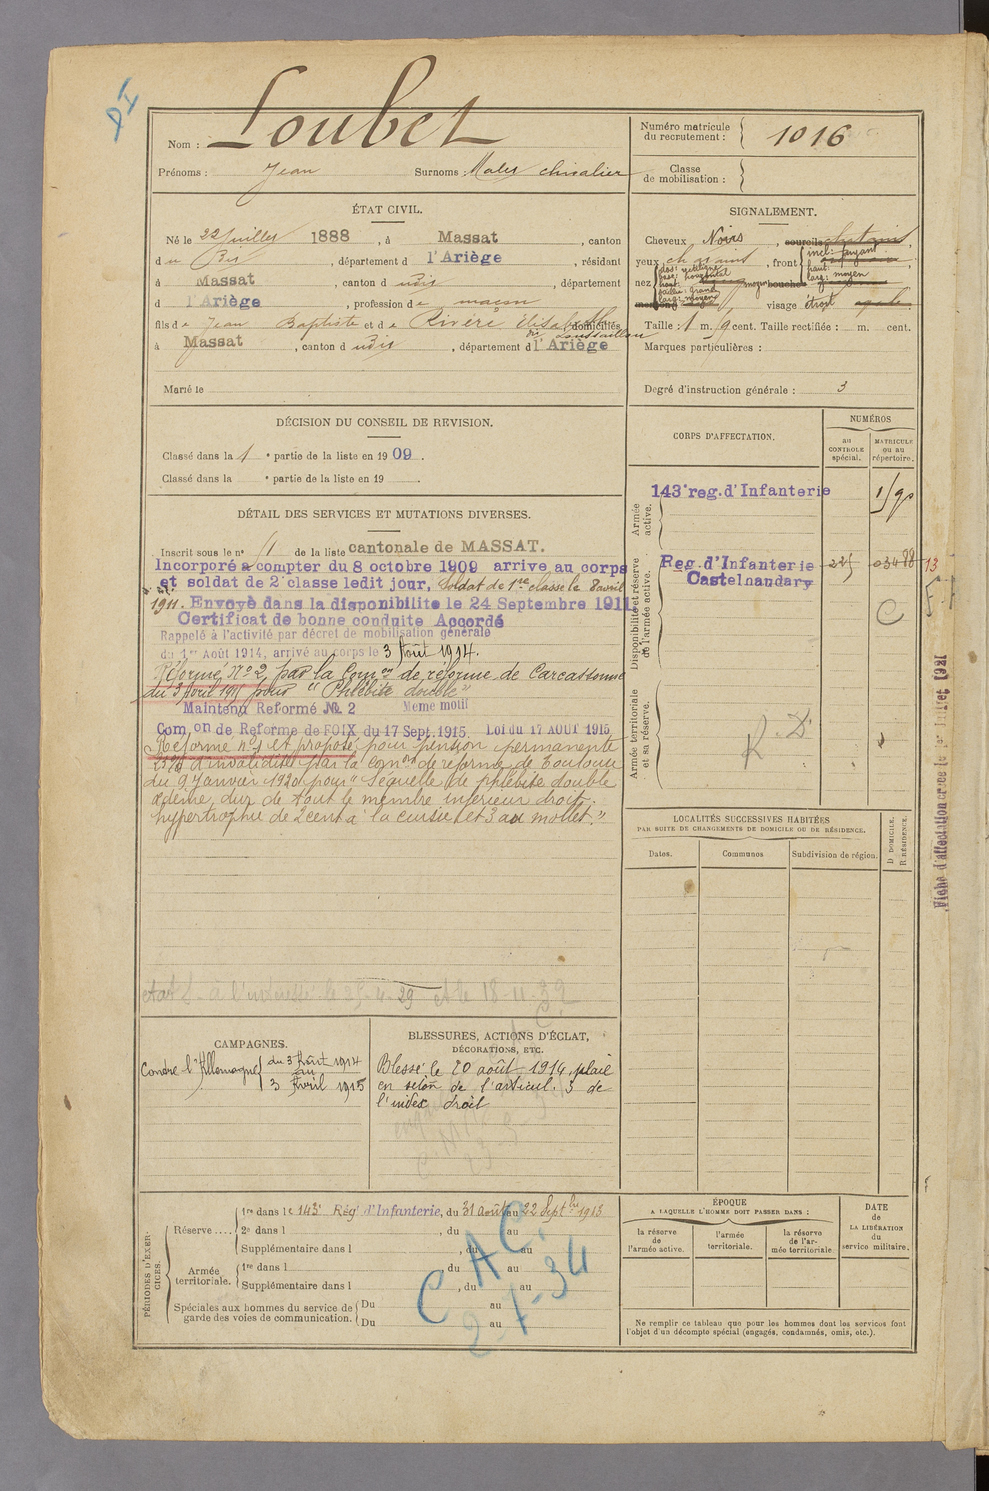 Nom : Loubet
Prénoms : Jean Surnoms :
Numéro matricule du recrutement : 1016
Classe de mobilisation :
ÉTAT CIVIL.
Né le 22 Juillet 1888, à Massat, canton
du dit, département d l'Ariège, résidant
à Massat, canton d udit, département
d l'Ariège, profession de maçon
fils de Jean Baptiste et de Rivière Elisabeth domiciliés
à Massat, canton d udit, département d l'Ariège
Marié le
SIGNALEMENT.
Cheveux Noirs, sourcils chatains,
yeux chatains, front incl: fuyant
haut:
larg: moyen
nez dos: rectiligne
base: horizontal
haut:
saillie: grand
larg: moyen
bouche
visage étroit
Taille : 1 m. cent. Taille rectifiée : m. cent.
Marques particulières :
Degré d'instruction générale : 3
DÉCISION DU CONSEIL DE REVISION.
Classé dans la 1e partie de la liste en 1909.
Classé dans la e partie de la liste en 19
CORPS D'AFFECTATION.
NUMÉROS
au CONTROLE spécial.
MATRICULE ou au répertoire.
Armée active.
143e reg. d'Infanterie
Disponibilité et réserve de l'armée active.
Reg. d'Infanterie
Castelnaudary
Armée territoriale et sa réserve.
R.D.
C
13
DÉTAIL DES SERVICES ET MUTATIONS DIVERSES.
Inscrit sous le n° 11 de la liste cantonale de MASSAT.
Incorporé à compter du 8 octobre 1909 arrivé au corps
et soldat de 2e classe ledit jour, Soldat de 1re classe le 8 avril
1911. Envoyé dans la disponibilité le 24 Septembre 1911
Certificat de bonne conduite Accordé
Rappelé à l'activité par décret de mobilisation générale
du 1er Août 1914, arrivé au corps le 3 Août 1914.
Réformé N° 2 par la Comon de réforme de Carcassonne
du 3 Avril 1915 pour "Phlébite double"
Maintenu Reformé № 2 Meme motif
Com.on de Reforme de FOIX du 17 Sept. 1915. Loi du 17 AOUT 1915
Réformé n° 1 et proposé pour pension permanente
d'invalidité par la comon de réforme de Toulouse
du 9 Janvier 1920 pour "Séquelle de phlébite double
œdème dur de tout le membre inférieur droit.
hypertrophie de 2 cent à la cuisse et 3 au mollet."
à l'intéressé le 25-4-29 et le 18-11-32
LOCALITÉS SUCCESSIVES HABITÉES
PAR SUITE DE CHANGEMENTS DE DOMICILE OU DE RÉSIDENCE.
Dates. Communes Subdivision de région.
D DOMICILE.
R. RÉSIDENCE.
Fiche d'affectation créée le 1er Juillet 1921
CAMPAGNES.
Contre l'Allemagne du 3 Août 1914
au
3 Avril 1915
BLESSURES, ACTIONS D'ÉCLAT,
DÉCORATIONS, ETC.
Blessé le 20 août 1914, plaie
en séton de l'articul. 3 de
l'index droit
PÉRIODES D'EXERCICES.
Réserve.... 1re dans le 143e Rég. d'Infanterie, du 31 août au 22 Septbre 1913
2e dans l , du au
Supplémentaire dans l , du au
Armée territoriale. 1re dans l du au
Supplémentaire dans l , du au
Spéciales aux hommes du service de garde des voies de communication. Du au
Du au
C.A.C.
2-7-34
ÉPOQUE
A LAQUELLE L'HOMME DOIT PASSER DANS :
la réserve de l'armée active.
l'armée territoriale.
la réserve de l'armée territoriale.
DATE de LA LIBÉRATION du service militaire.
Ne remplir ce tableau que pour les hommes dont les services font
l'objet d'un décompte spécial (engagés, condamnés, omis, etc.).